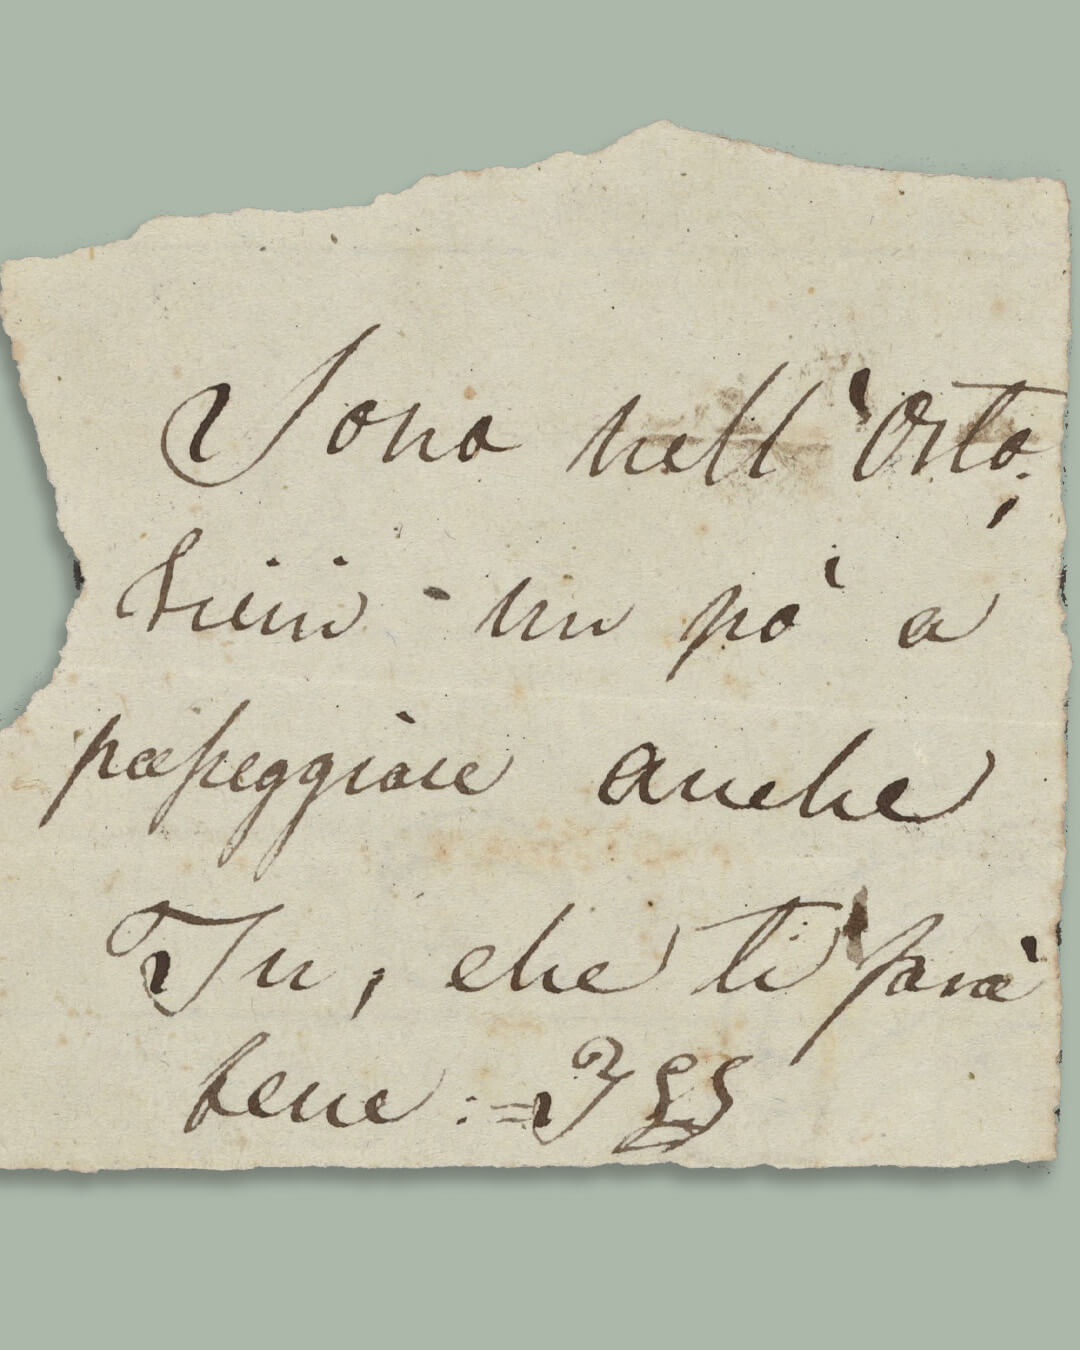 Sono nell'Orto;
vieni un pò a
passeggiare anche
Tu, che ti farà
bene :=